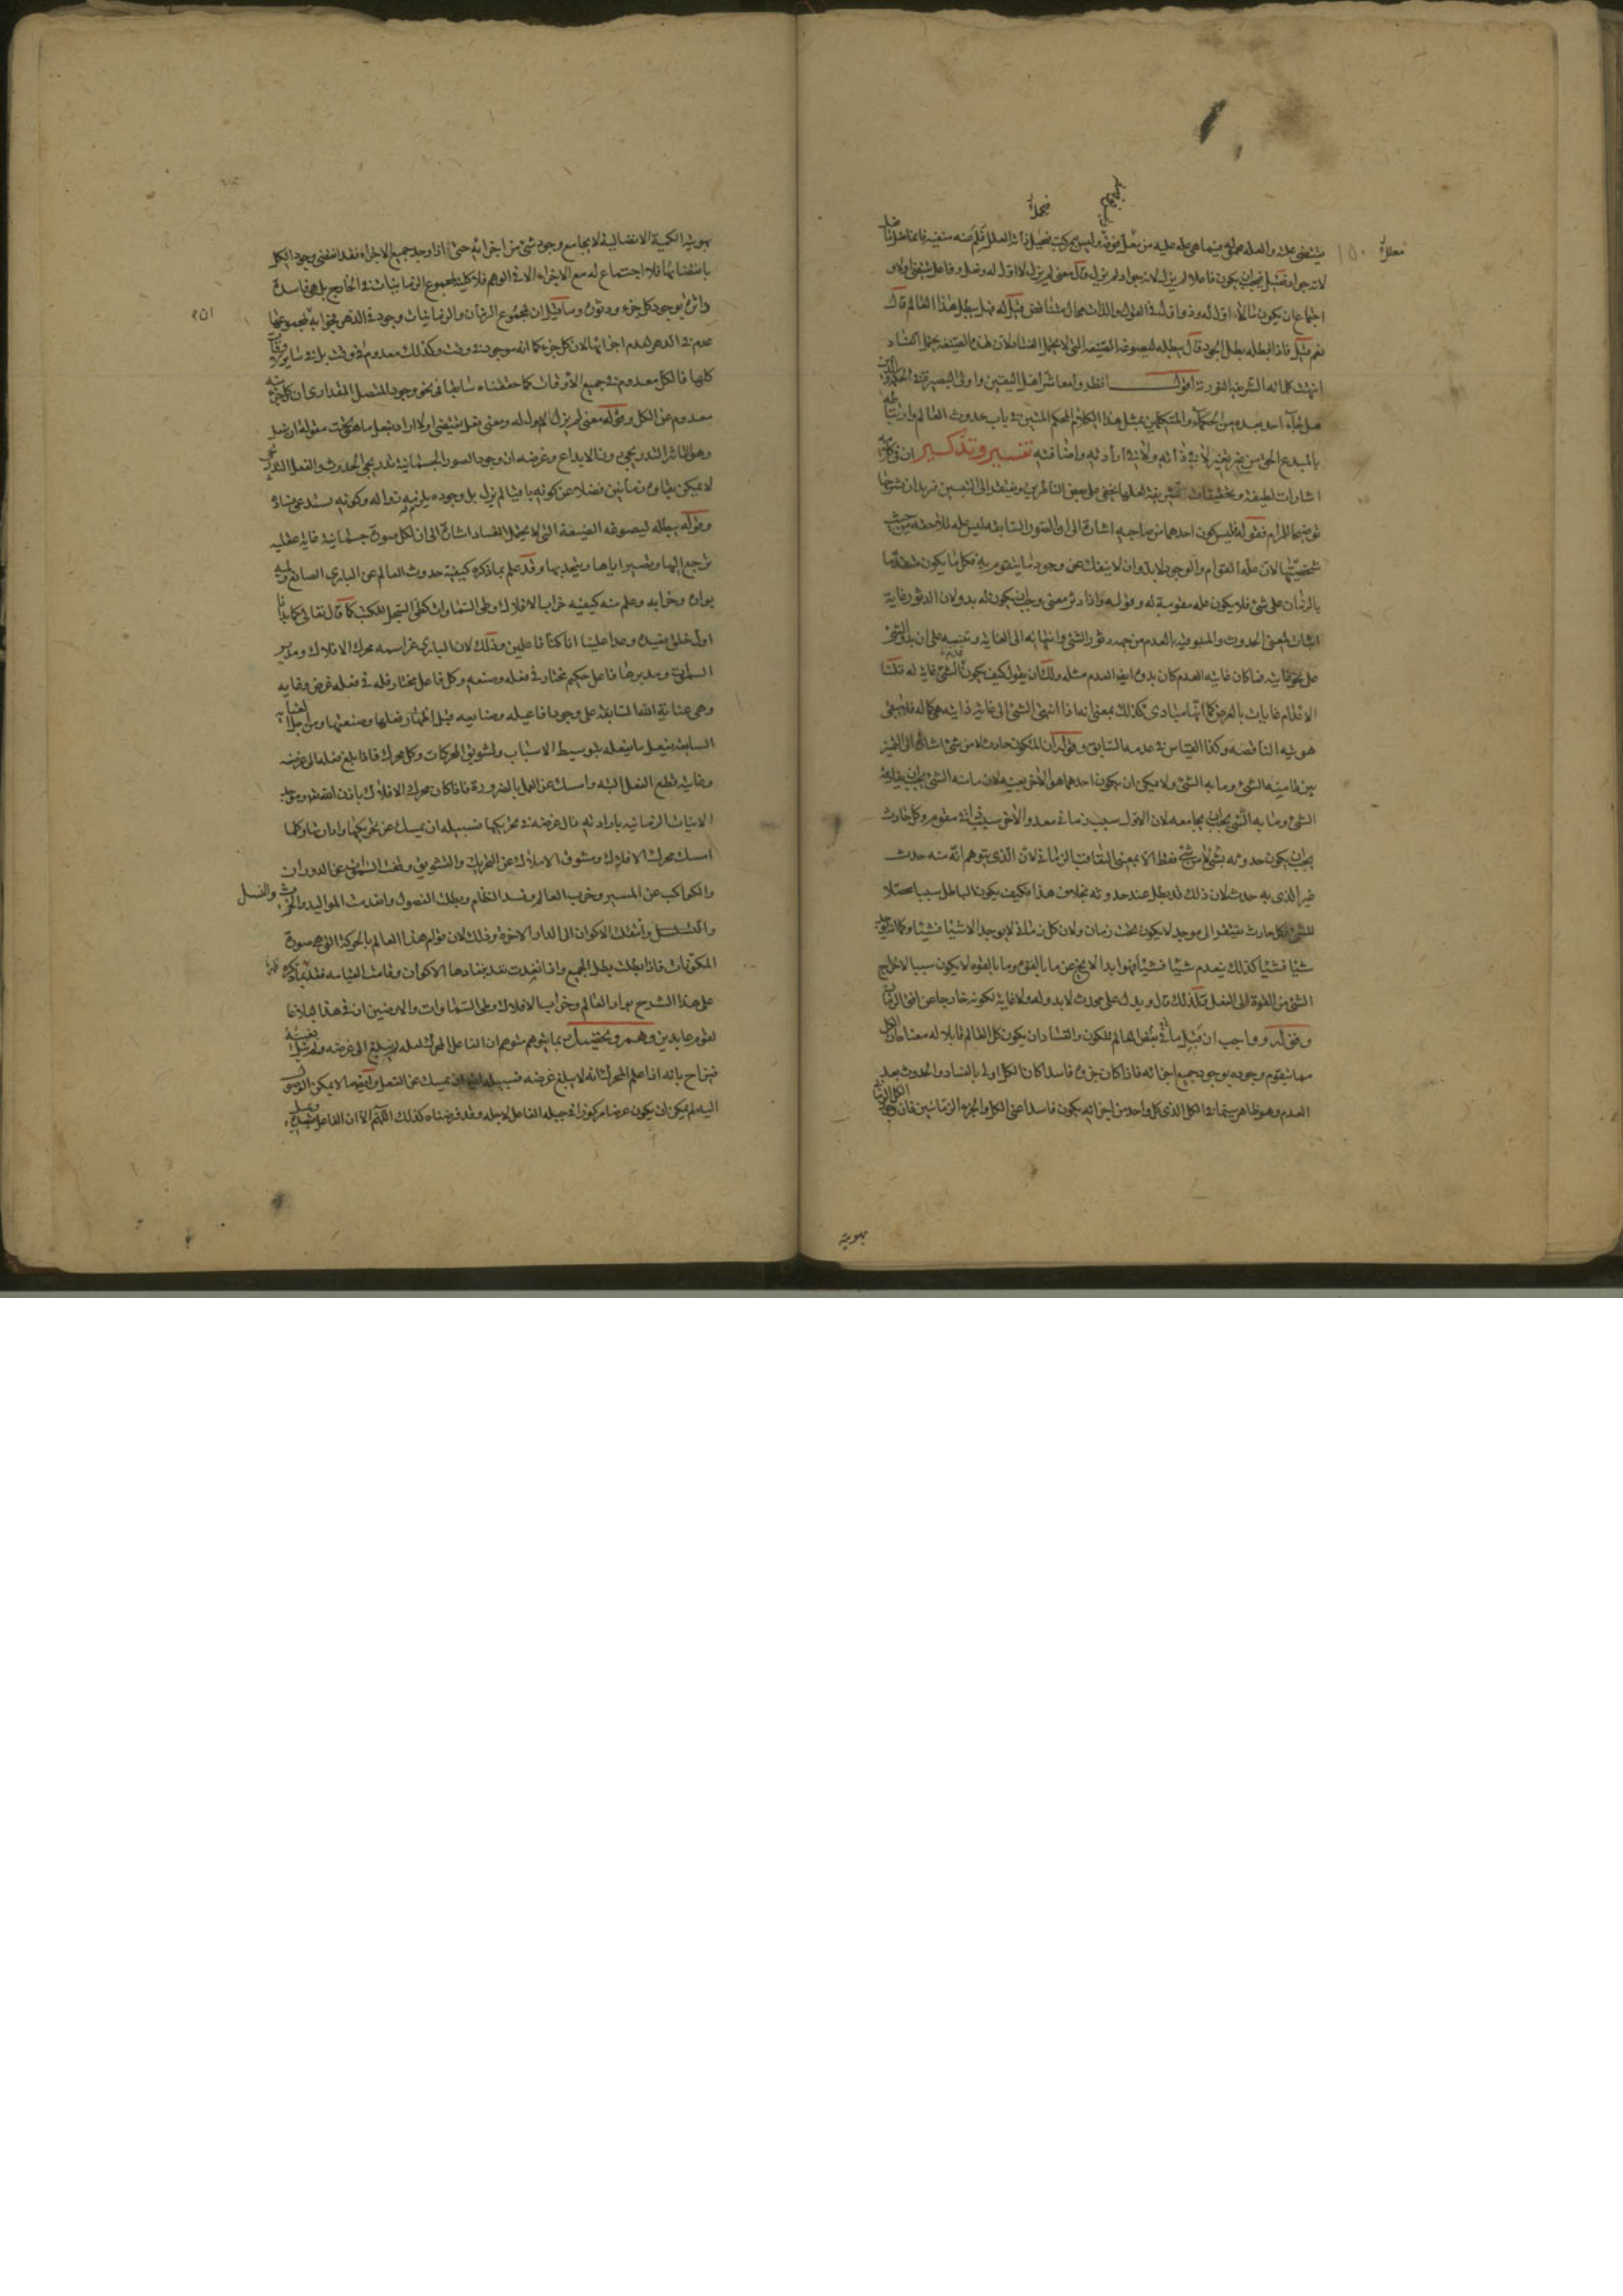 معلل
يقتضى علة والعلة محمولة فيما هى علة عليه من معل فوقه وليس بمركب فتحيل ذاته العلل فلم عنه منفية فانما فعل
لانه جواد فقيل فيجب ان يكون فاعلا لم يزل لانه جواد لم يزل قال معنى لم يزل لا اول له وفعل وفاعل يقتضى اولا و
اجتماع ان يكون ما لا اول له وذو اول فى القول والذات محال متناقض قيل له فهل يبطل هذا العالم قال
نعم قيل فاذا ابطله بطل الجود قال يبطله ليصوغه الصيغة التى لا يحتمل الفساد لان هذه الصيغة يحتمل الفساد
انتهت كلماته الشريفة النورية اقول فانظروا معاشر اهل اليقين واولى البصيرة فى الحكمة
هل جاء احد بعده من الحكماء والمتكلمين بمثل هذا الكلام المحكم المتين فى باب حدوث العالم وارتباطه
بالمبدع الحق من غير تغير لا فى ذاته ولا فى ارادته وافاضته تفسير وتذكير ان فى كلامه
اشارات لطيفة وتحقيقات شريفة لعلها تخفى على بعض الناظرين ويفتقر الى التبيين فنريد ان نشرحها
توضيحا للمرام فقوله فليس يكون احدهما من صاحبه اشارة الى ان الصور السابقة ليس علة للاحقة من حيث
شخصيتها لان علة القوام والوجود لا بد وان لا ينفك عن وجود ما يتقوم به فكل ما يكون متقدما
بالزمان على شئ فلا يكون علة مقومة له وقوله واذا دثر معنى وجب ان يكون له بدو لان الدثور غاية
اثبات لمعنى الحدوث والمسبوقية بالعدم من جهة دثور الشئ وانتهائه الى الغاية وتنبيه على ان بدو الشئ
على نحو غايته فما كان غايته العدم كان بدوه ايضا العدم مثله ولك ان يقول كيف يكون عدم الشئ غاية له قلنا
الاعدام غايات بالعرض كما انها مبادى كذلك بمعنى انه اذا انتهى الشئ الى غايته ذاتية هى كماله فلا يبقى
هويته الناقصة وكذا القياس فى عدمه السابق وقوله ان المتكون حادث لا من شئ اشارة الى التميز
بين ما منه الشئ وما به الشئ ولا يمكن ان يكون احدهما هو الاخر بعينه لان ما منه الشئ يجب ان يفارق
الشئ وما به الشئ يجب ان يجامعه لان الاول سبب زمانى معد والاخر سبب ذاتى مقوم وكل حادث
يجب ان يكون حدوثه بشئ لا من شئ فقط الا بمعنى التعاقب الزمانى لان الذى يتوهم انه منه حدث
غير الذى به حدث لان ذلك قد بطل عند حدوثه بخلاف هذا فكيف يكون الباطل سببا محصلا
للشئ فكل حادث يفتقر الى موجد لا يكون تحت زمان ولان كل زمانى لا يوجد الا شيئا فشيئا وكما يوجد
شيئا فشيئا كذلك ينعدم شيئا فشيئا فهو ابدا لا يخرج عن ما بالقوة وما بالقوة لا يكون سببا لاخراج
الشئ من القوة الى الفعل فلذلك قال ويدل على محدث لا بدو له ولا غاية لكونه خارجا عن افق الزمان
وقوله وواجب ان قبل ما فى بعض العالم للكون والفساد ان يكون كل العالم قابلا له معناه ان الكل
مما يتقوم وجوده بوجود جميع اجزائه فاذا كان جزؤه فاسدا كان الكل اولى بالفساد والحدوث بعد
العدم وهو ظاهر سيما فى الكل الذى كل واحد من اجزائه يكون فاسدا عن الكل والجزء الزمانيين فان
بهوية
بهوية الكمية الانفصالية لا يجامع وجود شئ من اجزائه حتى اذا وجد جميع الاجزاء فقد انقضى وجود الكل
بانقضائها فلا اجتماع له مع الاجزاء الا فى الوهم فلا كلية لمجموع الزمانيات فى الخارج بل هى فاسدة
داثرة بوجود كل جزء ودثوره وما قيل ان لمجموع الزمان والزمانيات وجود فى الدهر فجوابه لمجموعها
عدم فى الدهر لعدم اجزائها لان كل جزء كما انه موجود فى وقت وكذلك معدوم فى وقت بل فى سائر
كلها فالكل معدوم فى جميع الاوقات كما حققناه سابقا فى نحو وجود المتصل المقدارى ان كل جزء
معدوم عن الكل وقوله معنى لم يزل لا اول له ومعنى فعل يقتضى اولا اراد بفعل ما هو تحت مقولة ان يفعل
وهو التاثير التدريجى دون الابداع وغرضه ان وجود الصور الجسمانية تدريجى الحدوث والفعل التدريجى
لا يمكن بقاؤه زمانين فضلا عن كونه باقيا لم يزل بل وجوده يلزمه زواله وكونه يستدعى فساده
وقوله يبطله ليصوغه الصيغة التى لا يحتمل الفساد اشارة الى ان لكل صورة جسمانية غاية عقلية
ترجع اليها وتصير اياها ويتحد بها وقد علم بما ذكره كيفية حدوث العالم عن البارى الصانع
بواره وخرابه وعلم منه كيفية خراب الافلاك وطى السماوات كطى السجل للكتب كما قال تعالى كما بدانا
اول خلق نعيده وعدا علينا انا كنا فاعلين وذلك لان البارى عز اسمه محرك الافلاك ومدير
السماوات ومدبرها فاعل حكيم مختار فى فعله وصنعه وكل فاعل مختار فله فى فعله غرض وغاية
وهى عناية الله السابقة على وجود افاعيله وصنايعه قبل اظهار فعلها وصنعتها ومن اجل العناية
السابقة يفعل ما يفعله بتوسيط الاسباب وتشويق المحركات وكل محرك فاذا بلغ فعله الى غرضه
وغايته قطع الفعل البتة وامسك عن العمل بالضرورة فاذا كان محرك الافلاك باذن الله
الانيات الزمانية بارادته نال غرضه فى تحريكها فسبيله ان يمسك عن تحريكها وادارتها وكلما
امسك محرك الافلاك ومشوق الاملاك عن التحريك والتشويق وقفت السماوات عن الدوران
والكواكب عن المسير وخرب العالم وفسد النظام وبطلت الفصول وانعدمت المواليد والحرث والنسل
وانتقلت الاكوان الى الدار الاخرة وذلك لان قوام هذا العالم بالحركة التى هى صورة
المكونات فاذا بطلت بطل الجميع واذا انفدت نفد بنفادها الاكوان وقامت القيامة
على هذا الشرح بوار العالم وخراب الافلاك وطى السماوات والارضين ان فى هذا لبلاغا
لقوم عابدين وهم وتحقيق ربما يتوهم متوهم ان الفاعل المحرك لعله لم يبلغ الى غرضه ولم ينل بغيته
فيزاح بانه اذا علم المحرك انه لا يبلغ غرضه فسبيله ايضا ان يمسك عن الفعل وايضا ما لا يمكن الوصول
اليه لم يمكن ان يكون غرضا مركوزا فى جبلة الفاعل لاجله وقد فرضناه كذلك اللهم الا ان الفاعل